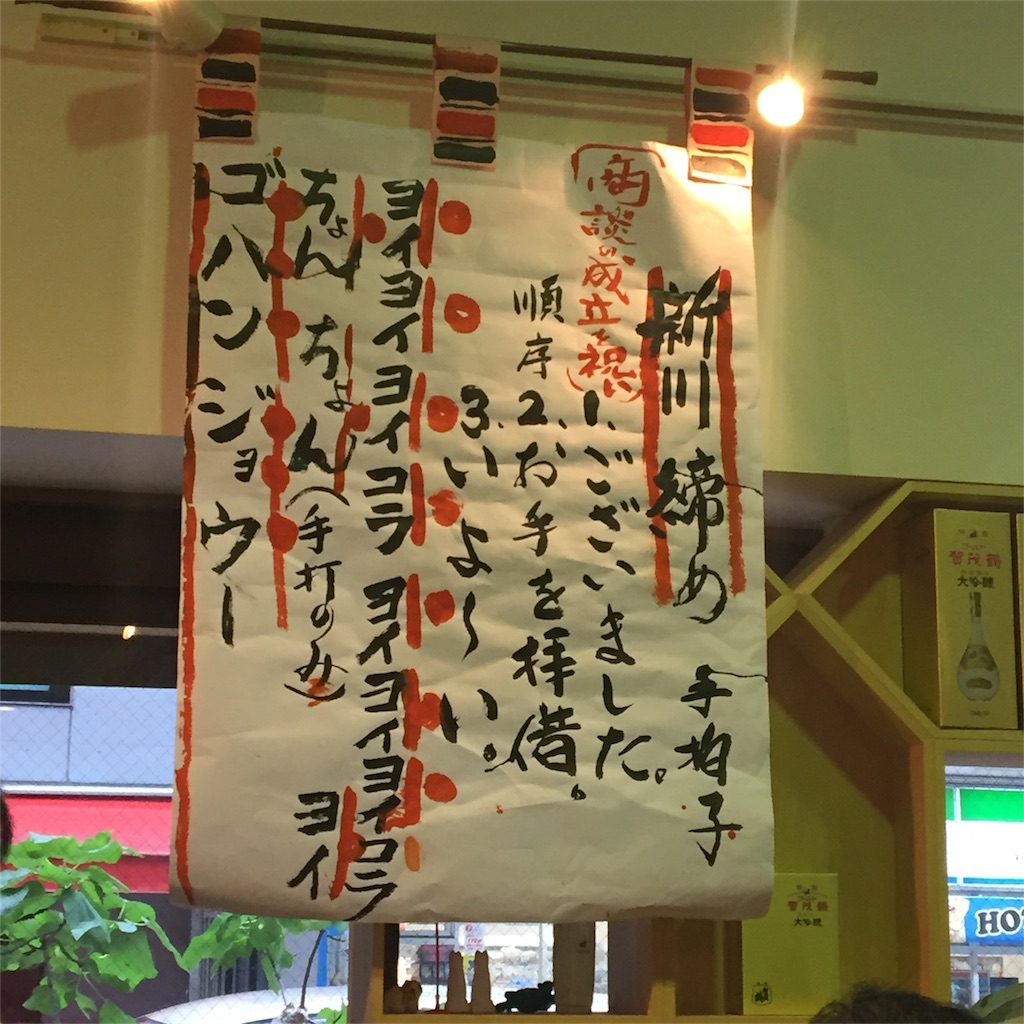 新川締め 手拍子
「商談の成立を祝い」
1.ございました。
順序2、お手を拝借。
3.いよ～い。
ヨイヨイヨイコラ ヨイヨイヨイコラ
ヨイ
ちょん ちょん(手打のみ)
ゴハンジョウー
ゴールド
賀茂鶴
大吟醸
賀茂鶴
大吟醸
HO